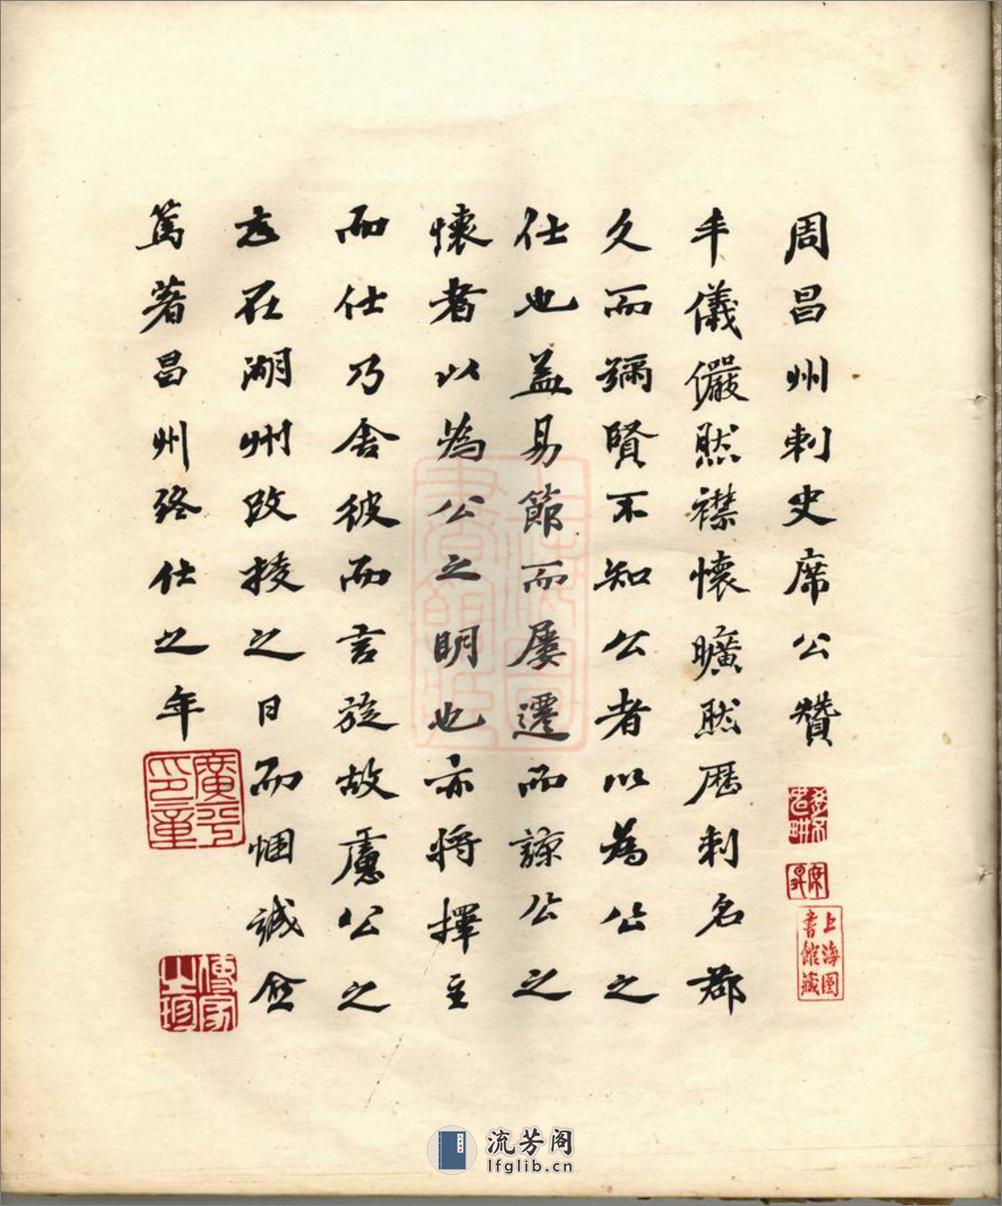 周昌州刺史席公贊
丰儀儼然襟懷曠然歷刺名郡
久而彌賢不知公者以為公之
仕也益易節而屡遷而諒公之
懷者以為公之明也亦將擇主
而仕乃舍彼而言旋故慮公之
志在湖州改授之日而悃誠愈
篤著昌州終仕之年
上海圖
書館藏
廣平
印章
傳家
之珍
流芳阁
lfglib.cn